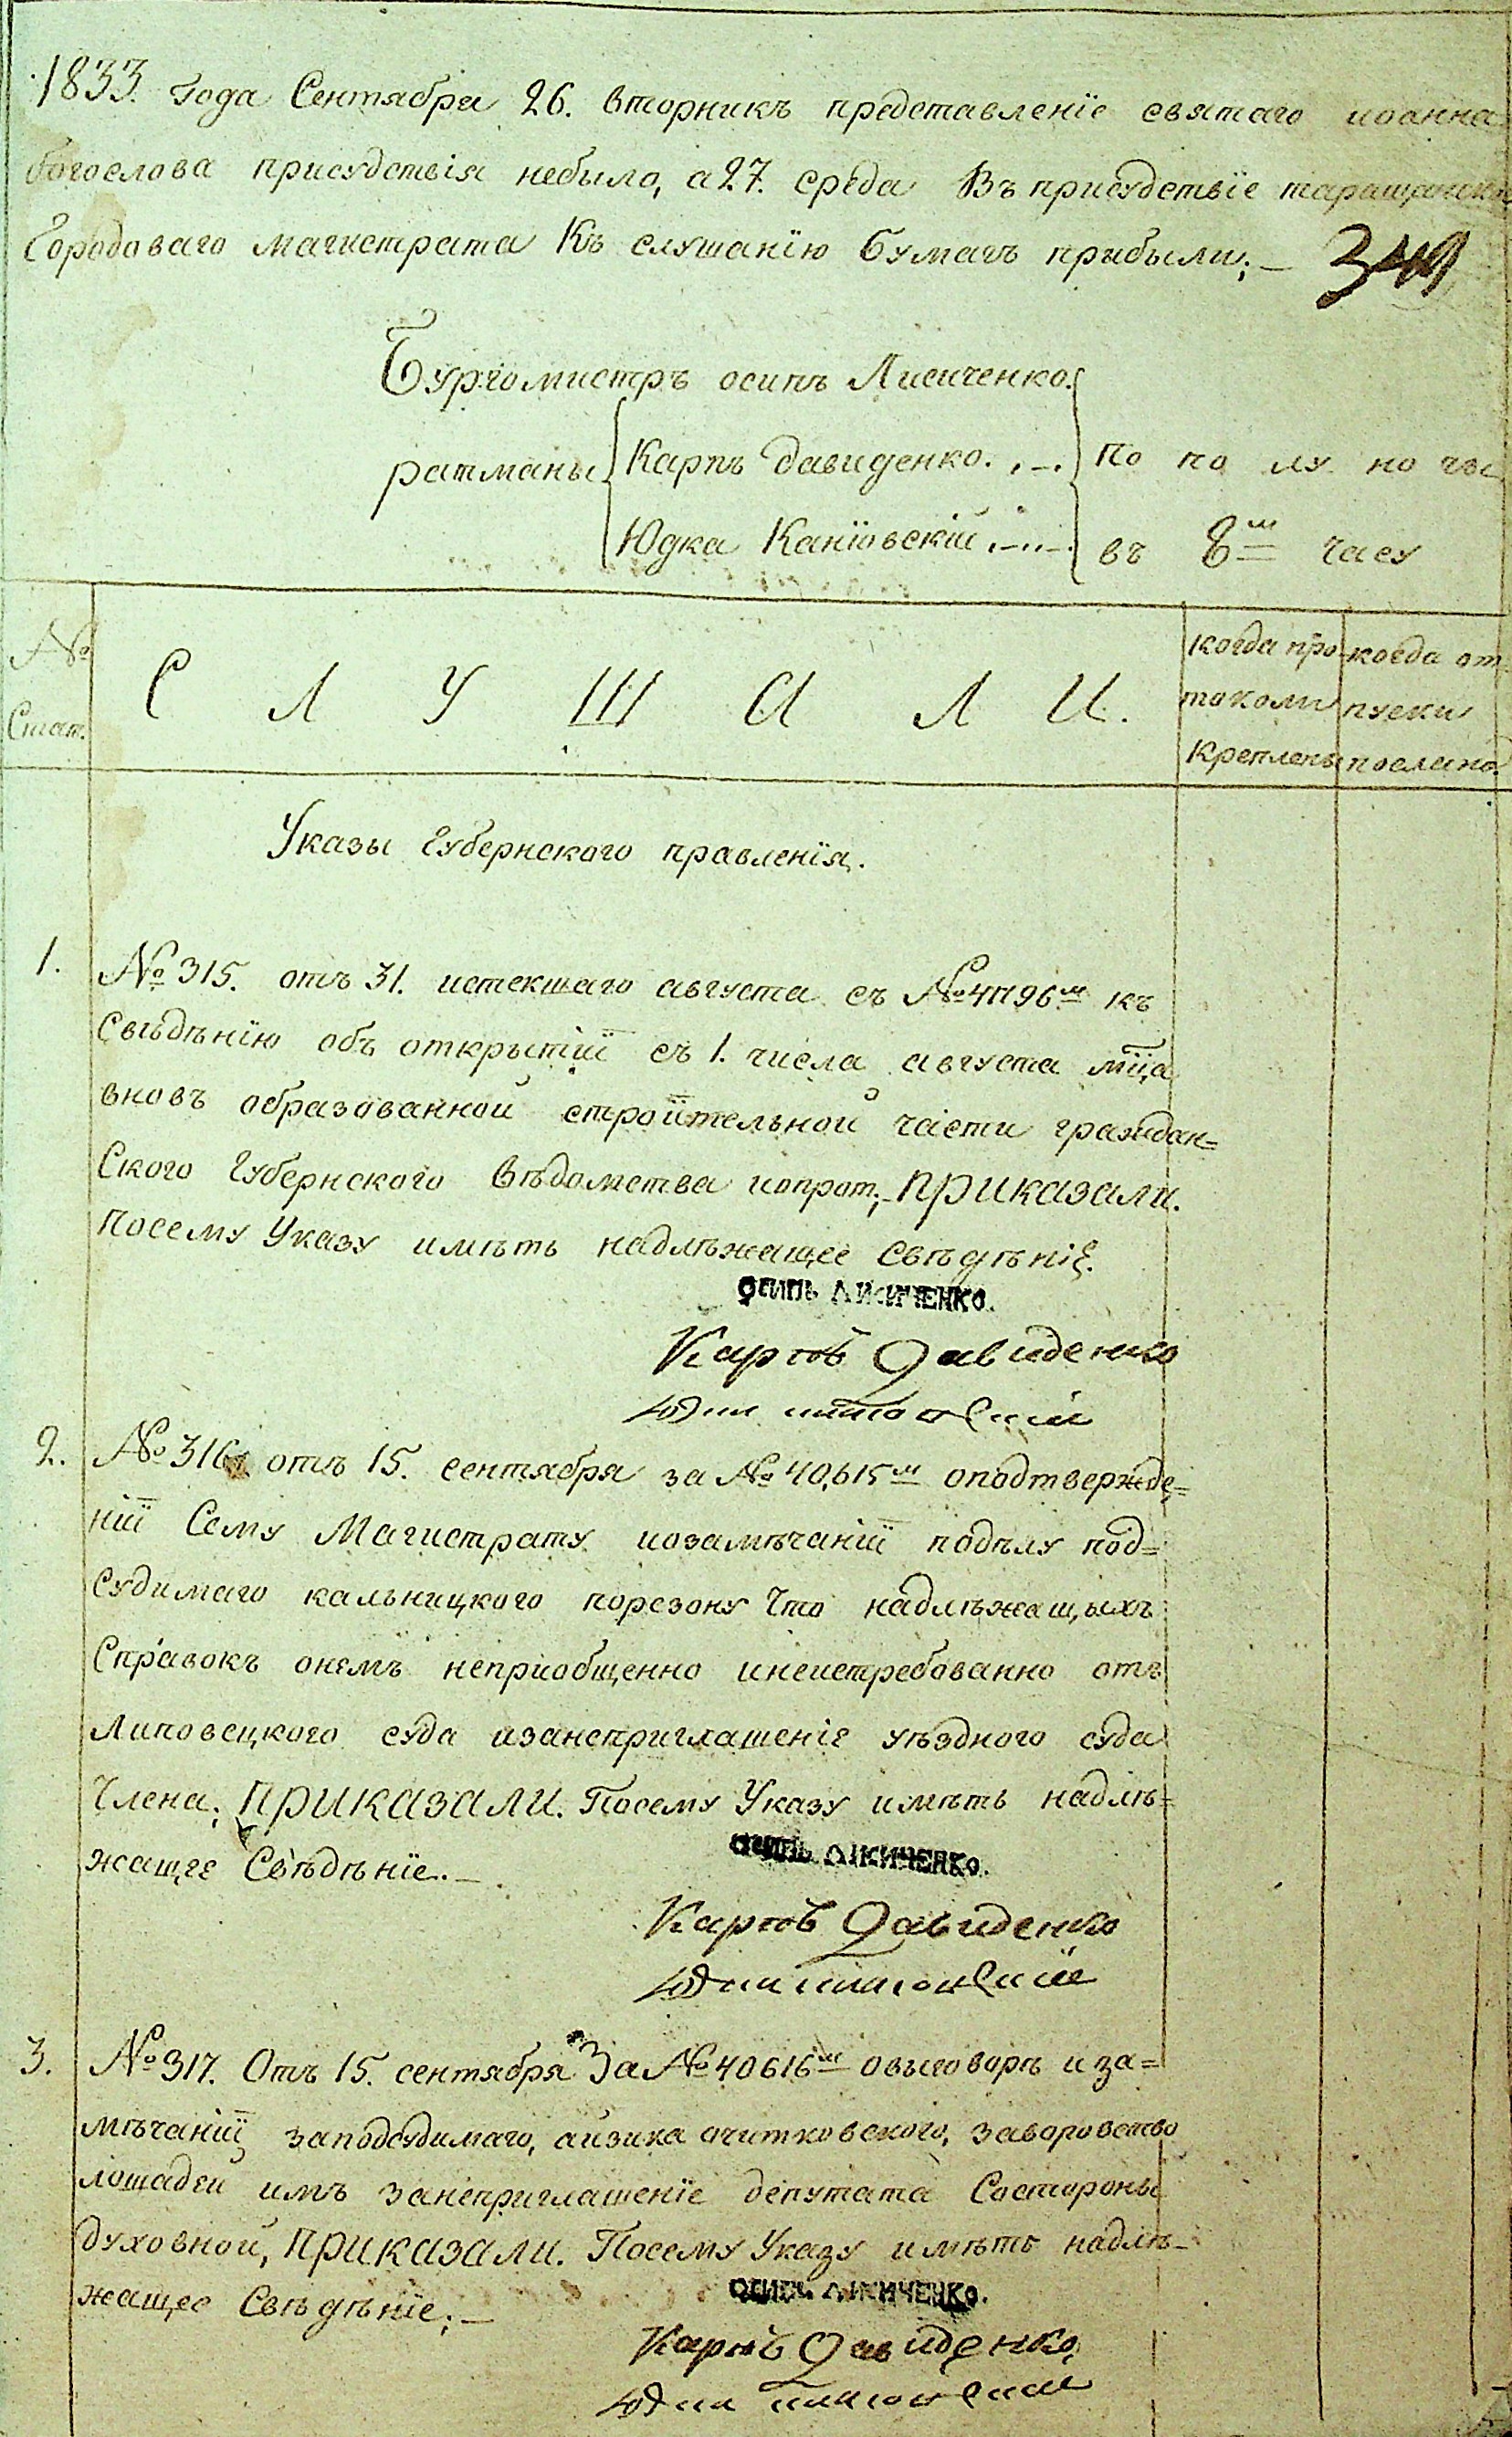 1833. Года Сентября 26. вторникъ представленїе святаго иоанна
богослова присудствїя небыло, а 27. среда Въ присудствїе таращанско
Городоваго магистрата Къ слушанїю бумагъ прибыли; — 349
Бургомистръ осипъ Лисиченко.
ратманы Карпъ Давиденко. По по лу но чы
Юдка Канїовскїй въ 8м часу
№ Стат.
С Л У Ш А Л И.
когда про
токоли
креплены
когда от
пуски
послано
Указы Губернского правленїя.
1. № 315. отъ 31. истекшаго августа съ № 41796м къ
свѣдѣнїю объ открытїи съ 1. числа августа мца
вновъ образованной строительной части граждан=
ского Губернского вѣдомства ипрот; ПРИКАЗАЛИ.
Посему Указу имѣть надлѣжащее свѣдѣнїе.
ОСИПЪ ЛИСИЧЕНКО.
Карпъ Давиденко
2. № 316. отъ 15. сентября за № 40,615м оподтвержде=
нїи Сему Магистрату иозамѣчанїи подѣлу под=
судимаго кальницкого порезону что надлѣжащыхъ
справокъ онемъ неприобщенно инеистребованно отъ
Липовецкого суда изанеприглашенїе уѣздного суда
Члена; ПРИКАЗАЛИ. Посему Указу имѣть надлѣ=
жащее Свѣдѣнїе. —
ОСИПЪ ЛИСИЧЕНКО.
Карпъ Давиденко
3. № 317. Отъ 15. сентября За № 40616м овыговорѣ иза=
мѣчанїи заподсудимаго, айзика очитковского, заворовство
лошадей имъ занеприглашенїе депутата Состороны
духовной, ПРИКАЗАЛИ. Посему Указу имѣть надлѣ=
жащее Свѣдѣнїе; —
ОСИПЪ ЛИСИЧЕНКО.
Карпъ Давиденко